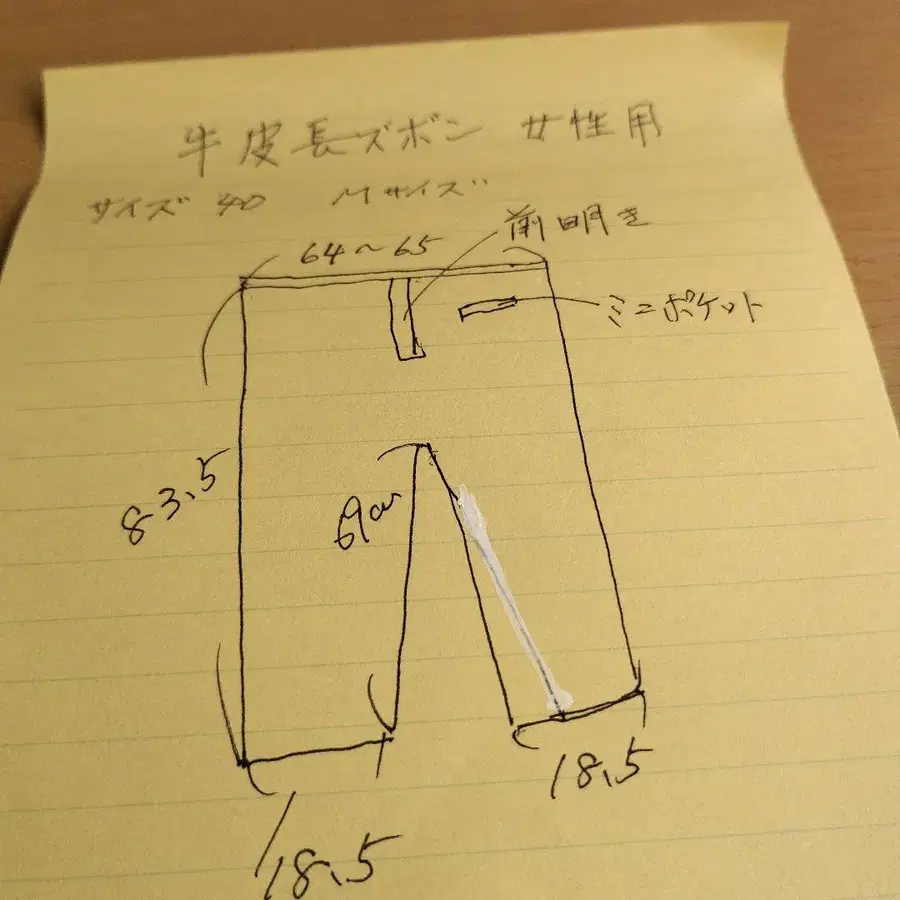 牛皮長ズボン 女性用
サイズ 40 Mサイズ
64～65
前明き
ミニポケット
83.5
69cm
18.5
18.5